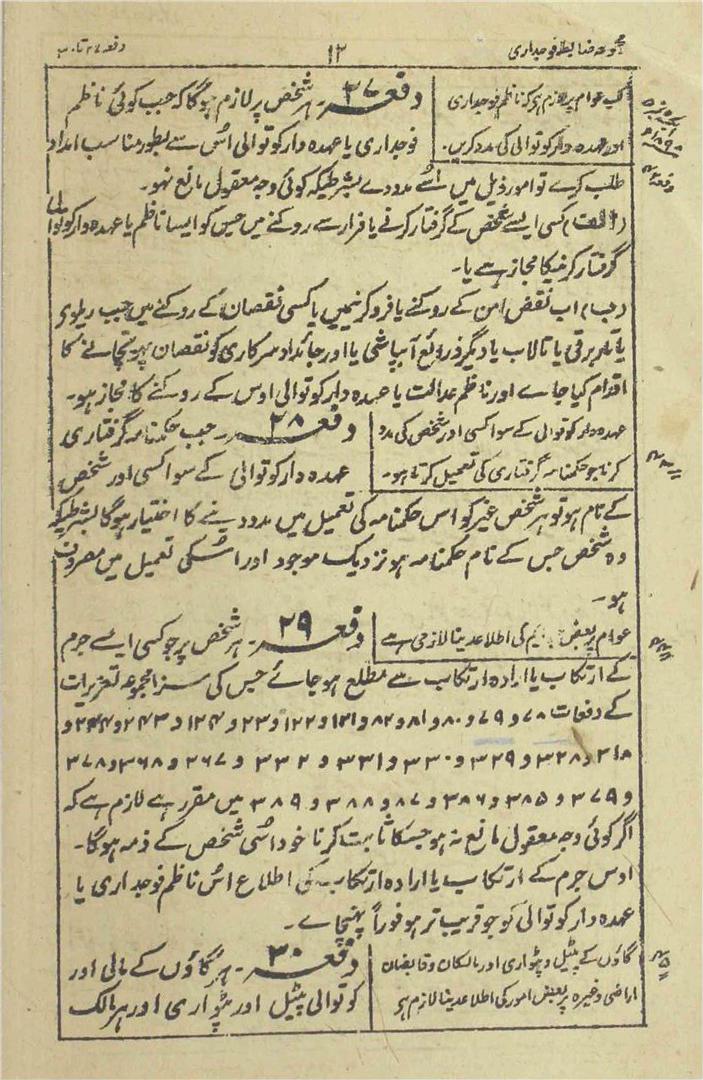 مجموعہ ضابطہ فوجداری
۱۲
دفعہ ۲۷ تا ۳۰
کب عوام پر لازم ہو کہ ناظم فوجداری
اور عہدہ دار کوتوالی کی مدد کریں۔
دفعہ ۲۷۔ ہر شخص پر لازم ہوگا کہ جب کوئی ناظم
فوجداری یا عہدہ دار کوتوالی اُس سے بطور مناسب امداد
طلب کرے تو امور ذیل میں اُسے مدد دے بشرطیکہ کوئی وجہ معقول مانع نہو۔
(الف) کسی ایسے شخص کے گرفتار کرنے یا فرار سے روکنے میں جس کو ایسا ناظم یا عہدہ دار کوتوالی
گرفتار کرنیکا مجاز ہے یا۔
(ب) اب نقض امن کے روکنے یا فرو کرنیمیں یا کسی نقصان کے روکنے میں جب ریلوی
یا تار برقی یا تالاب یا دیگر ذرائع آبپاشی یا اور جائداد سرکاری کو نقصان پہونچانے کا
اقدام کیا جاے اور ناظم عدالت یا عہدہ دار کوتوالی اوس کے روکنے کا مجاز ہو۔
عہدہ دار کوتوالی کے سوا کسی اور شخص کی مدد
کرنا جو حکمنامہ گرفتاری کی تعمیل کرتا ہو۔
دفعہ ۲۸۔ جب حکمنامہ گرفتاری
عہدہ دار کوتوالی کے سوا کسی اور شخص
کے نام ہو تو ہر شخص غیر کو اس حکمنامہ کی تعمیل میں مدد دینے کا اختیار ہوگا بشرطیکہ
وہ شخص جس کے نام حکمنامہ ہو نزدیک موجود اور اُسکی تعمیل میں مصروف
ہو۔
عوام پر بعض جرایم کی اطلاع دینا لازمی ہے
دفعہ ۲۹۔ ہر شخص پر جو کسی ایسے جرم
کے ارتکاب یا ارادہ ارتکاب سے مطلع ہو جائے جس کی سزا مجموعہ تعزیرات
کے دفعات ۷۸ و ۷۹ و ۸۰ و ۸۱ و ۸۲ و ۱۲۱ و ۱۲۲ و ۱۲۳ و ۱۲۴ و ۲۴۳ و ۲۴۴ و
۳۱۸ و ۳۲۸ و ۳۲۹ و ۳۳۰ و ۳۳۱ و ۳۳۲ و ۳۶۷ و ۳۶۸ و ۳۷۸
و ۳۷۹ و ۳۸۵ و ۳۸۶ و ۳۸۷ و ۳۸۸ و ۳۸۹ میں مقرر ہے لازم ہے کہ
اگر کوئی وجہ معقول مانع نہ ہو جسکا ثابت کرنا خود اُسی شخص کے ذمہ ہوگا۔
اوس جرم کے ارتکاب یا ارادہ ارتکاب کی اطلاع اُس ناظم فوجداری یا
عہدہ دار کوتوالی کو جو قریب تر ہو فوراً پہنچاے۔
گاؤں کے پٹیل و پٹواری اور مالکان و قابضان
اراضی وغیرہ پر بعض امور کی اطلاع دینا لازم ہی
دفعہ ۳۰۔ ہر گاؤں کے مالی اور
کوتوالی پٹیل اور پٹواری اور ہر مالک